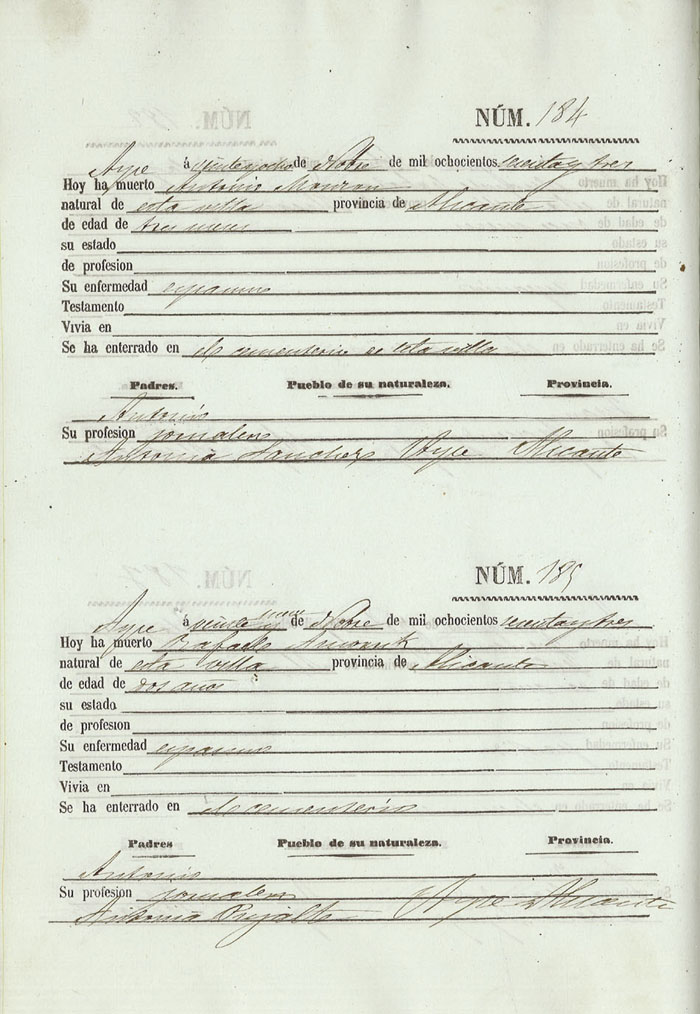 NÚM. 184
Aspe á veinte y ocho de Nobre de mil ochocientos sesenta y tres
Hoy ha muerto Antonio
natural de esta villa provincia de Alicante
de edad de tres meses
su estado
de profesion
Su enfermedad espasmo
Testamento
Vivia en
Se ha enterrado en el cementerio de esta villa
Padres. Pueblo de su naturaleza. Provincia.
Antonio
Su profesion jornalero
Antonia Sanchez Aspe Alicante
NÚM. 185
Aspe á veinte y nueve de Nobre de mil ochocientos sesenta y tres
Hoy ha muerto Rafaela
natural de esta villa provincia de Alicante
de edad de dos años
su estado
de profesion
Su enfermedad espasmo
Testamento
Vivia en
Se ha enterrado en el cementerio
Padres Pueblo de su naturaleza. Provincia.
Antonio
Su profesion jornalero
Antonia Pujalte Aspe Alicante